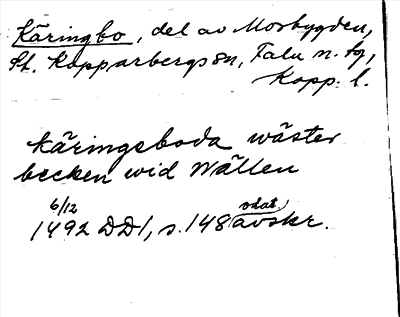 Käringbo, del av Morbygden,
St. Kopparbergs sn, Falu n. tg,
Kopp. l.
käringsboda wäster
becken wid Wällen
6/12 odat
1492 DD1, s. 148 avskr.